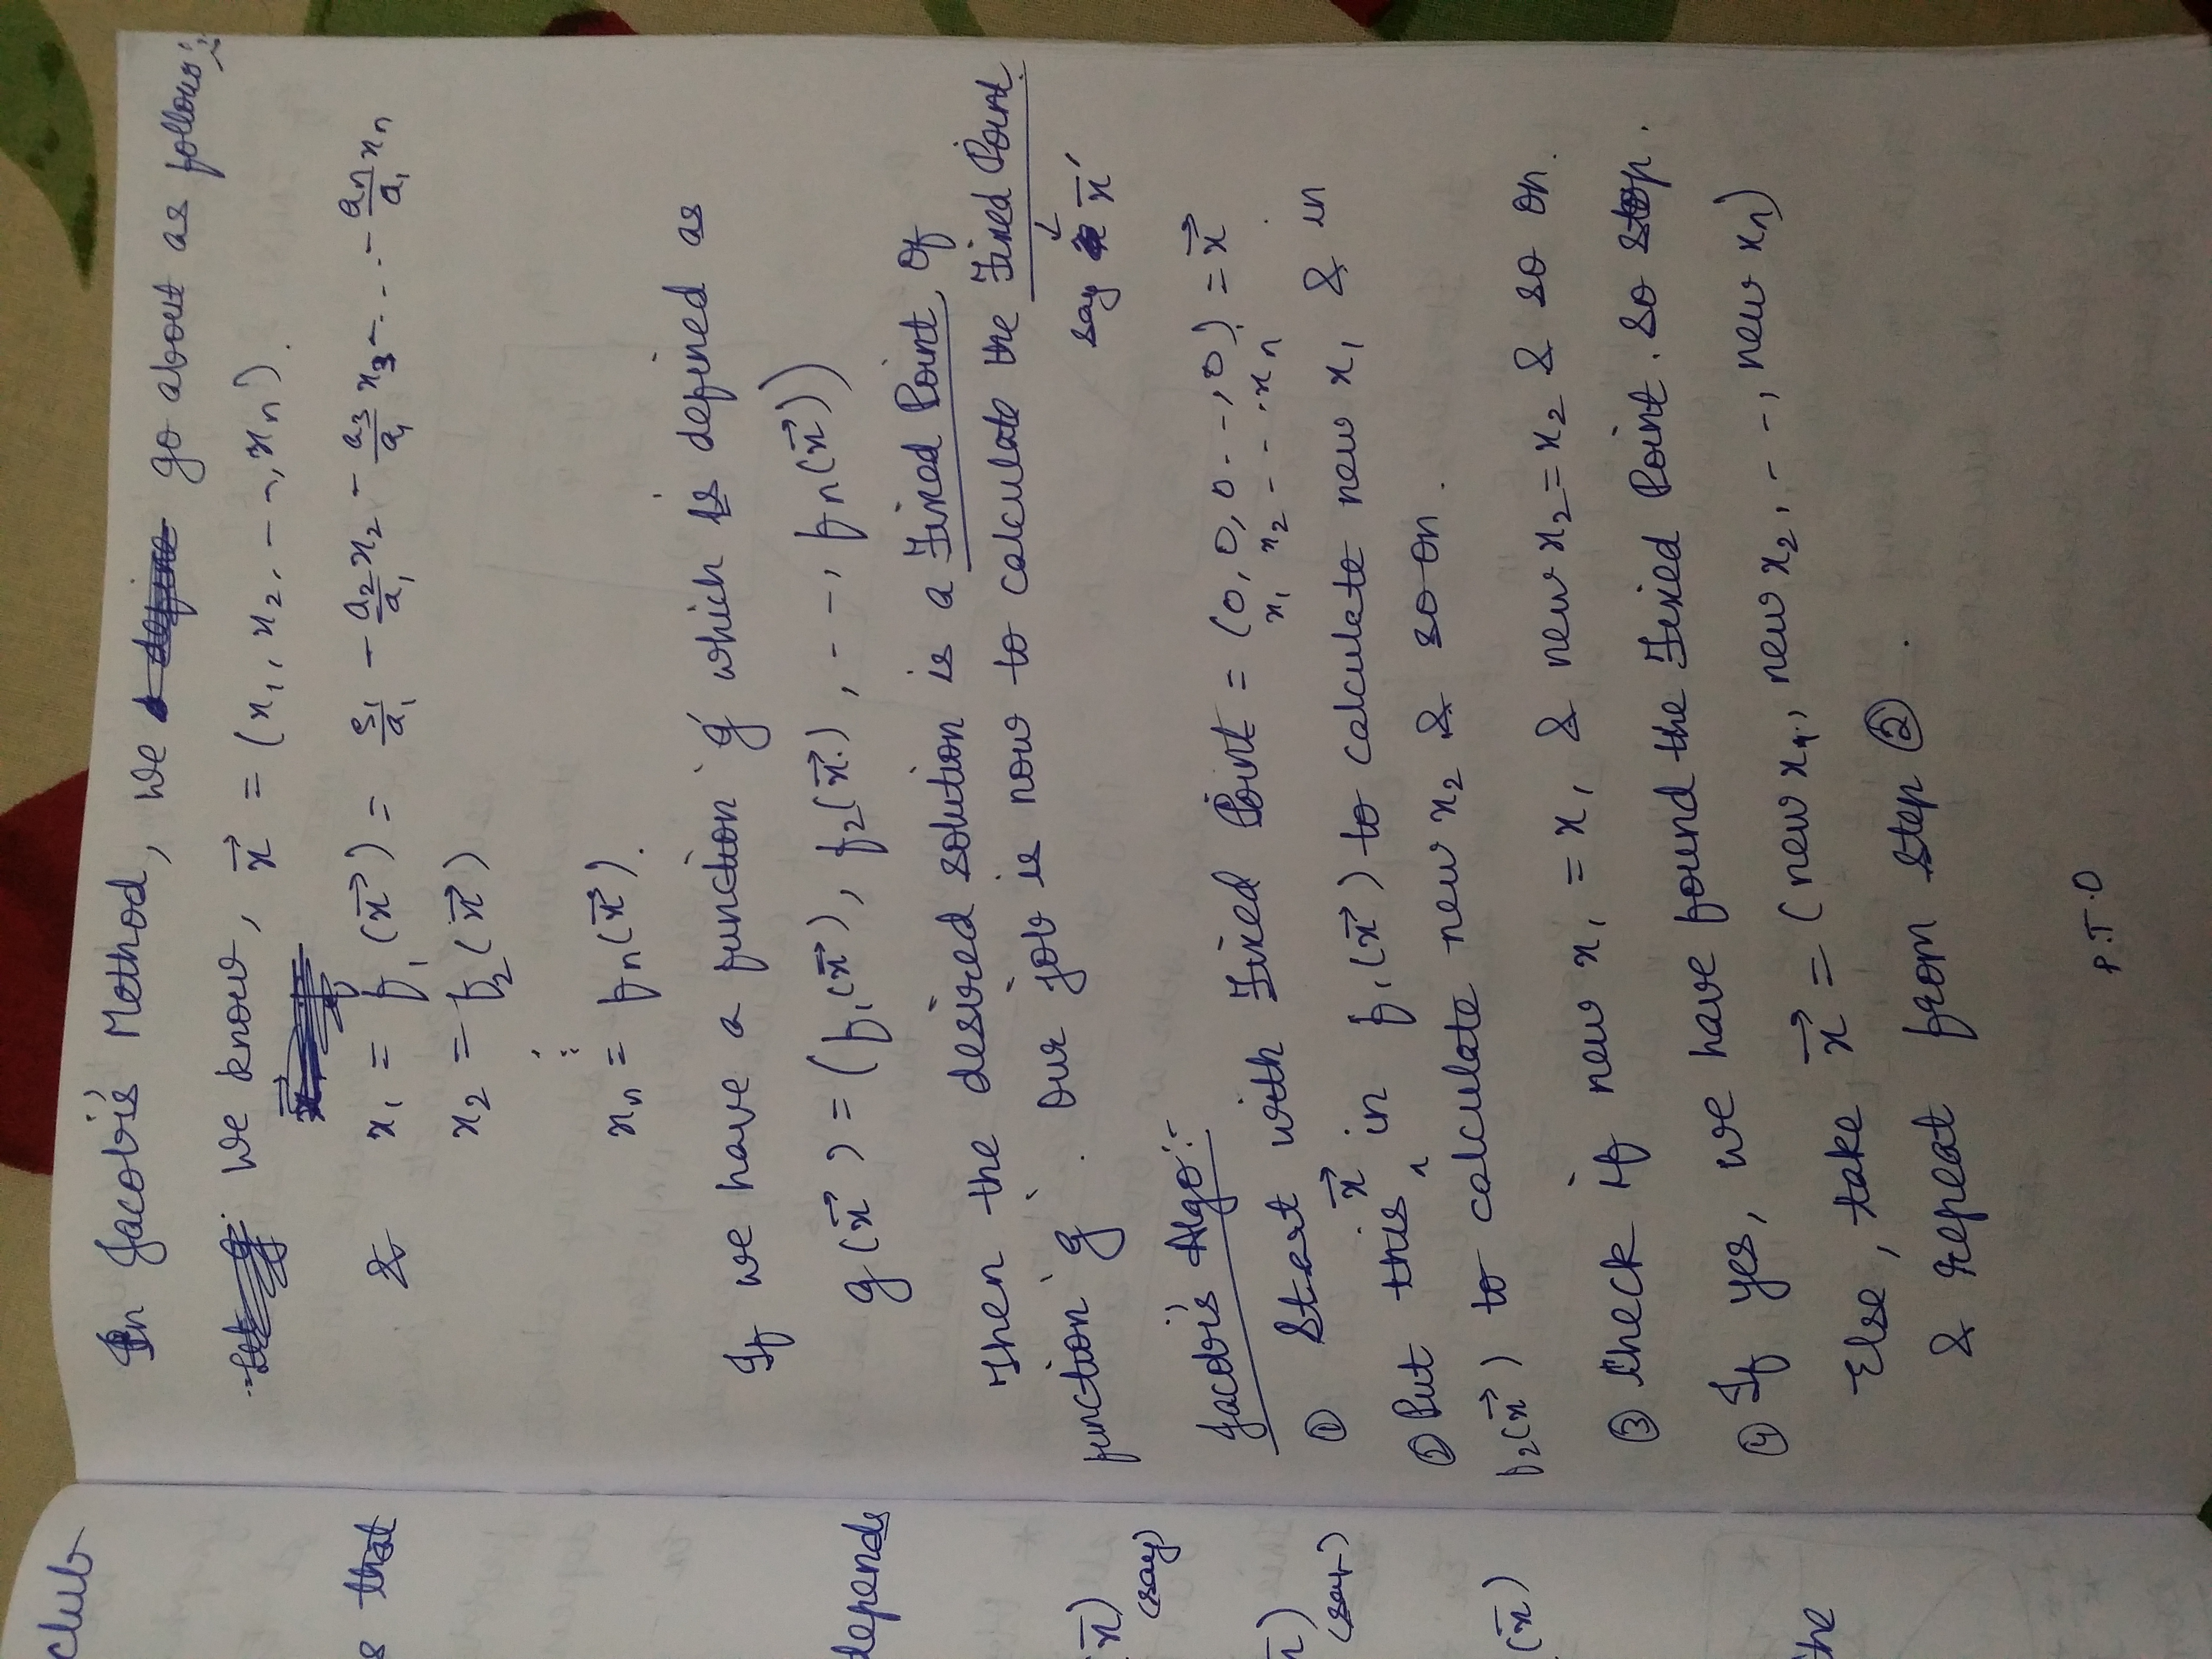 club
s that
depends
(x̄)
(say)
(say)
(x̄)
the
In Jacobi's Method, we go about as follows:-
We know, x⃗ = (x₁, x₂, - -, xₙ).
& x₁ = f₁(x⃗) = s₁/a₁ - a₂/a₁ x₂ - a₃/a₁ x₃ - ... - aₙ/a₁ xₙ
x₂ = f₂(x⃗)
⋮
xₙ = fₙ(x⃗).
If we have a function 'g' which is defined as
g(x⃗) = (f₁(x⃗), f₂(x⃗), - -, fₙ(x⃗))
Then the desired solution is a Fixed Point of
function 'g'. Our job is now to calculate the Fixed Point.
↓
say x̄'
Jacobi's Algo:-
① Start with Fixed Point = (0, 0, 0 - -, 0) = x⃗
x₁ x₂ - - - xₙ
② Put this x⃗ in f₁(x⃗) to calculate new x₁ & in
f₂(x⃗) to calculate new x₂ & so on.
③ Check if new x₁ = x₁ & new x₂ = x₂ & so on.
④ If yes, we have found the Fixed Point. So stop.
Else, take x⃗ = (new x₁, new x₂, - -, new xₙ)
& repeat from step ②.
P.T.O